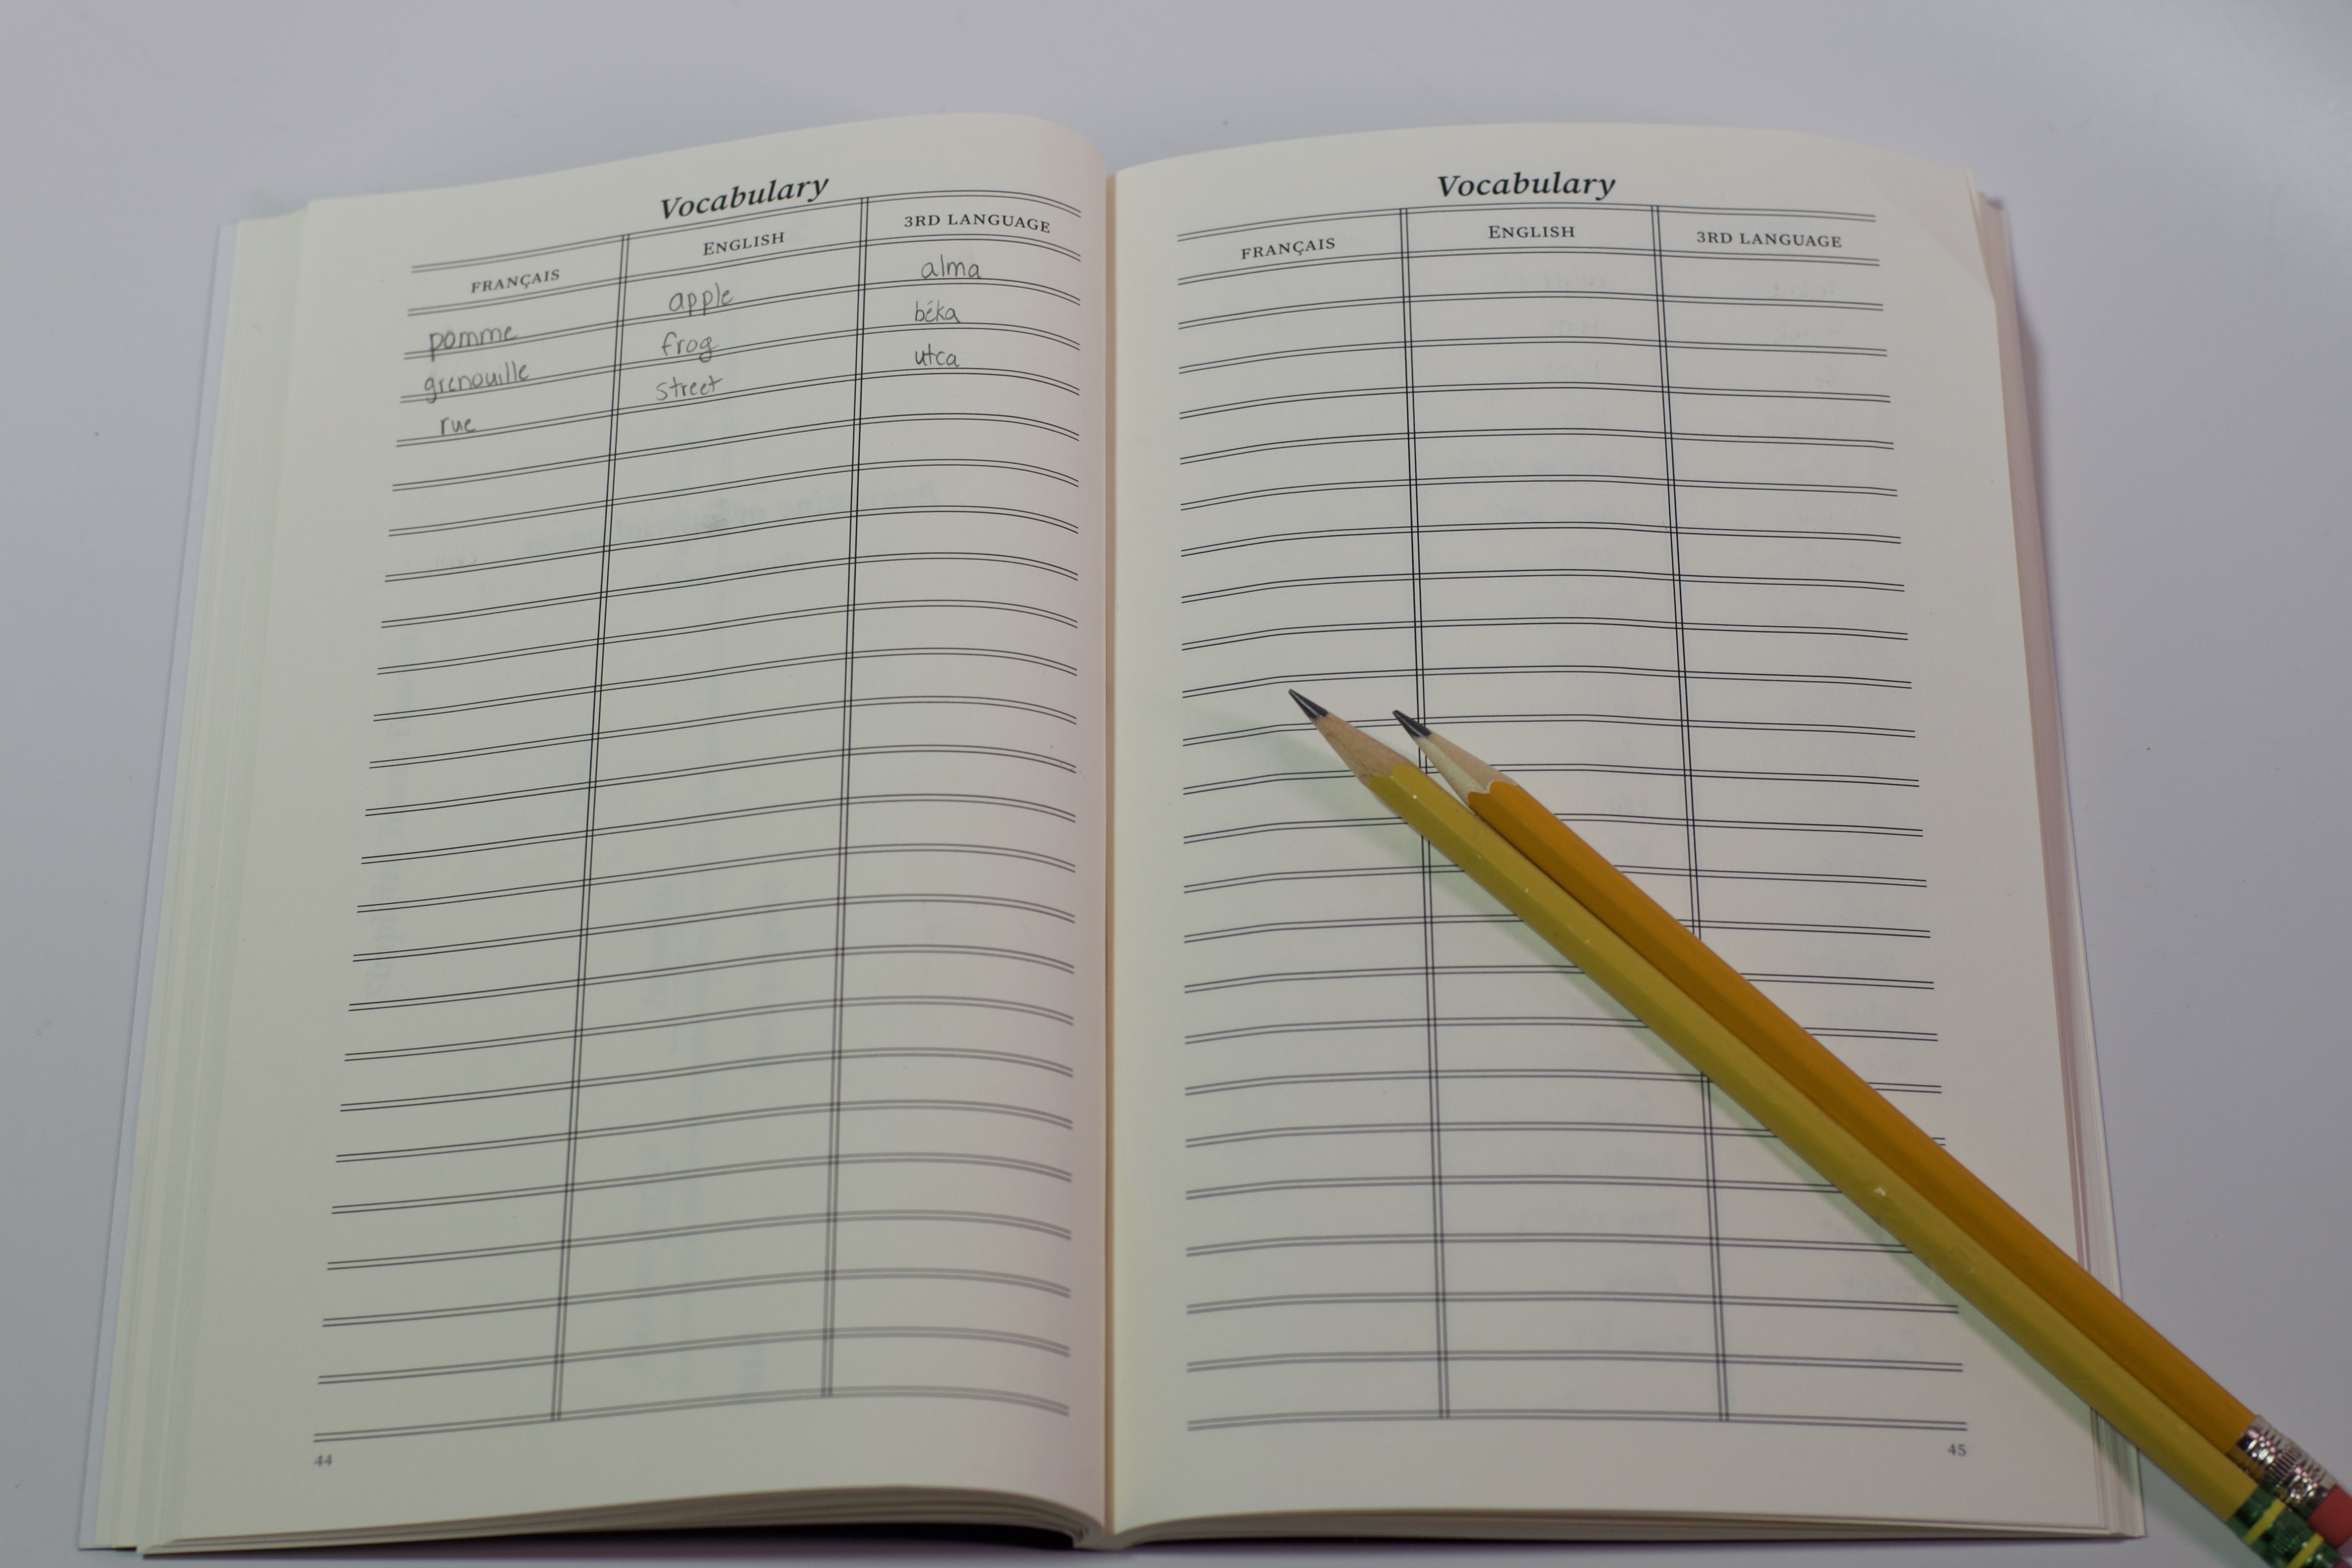 Vocabulary
FRANÇAIS ENGLISH 3RD LANGUAGE
pomme apple alma
grenouille frog béka
rue street utca
44
Vocabulary
FRANÇAIS ENGLISH 3RD LANGUAGE
45